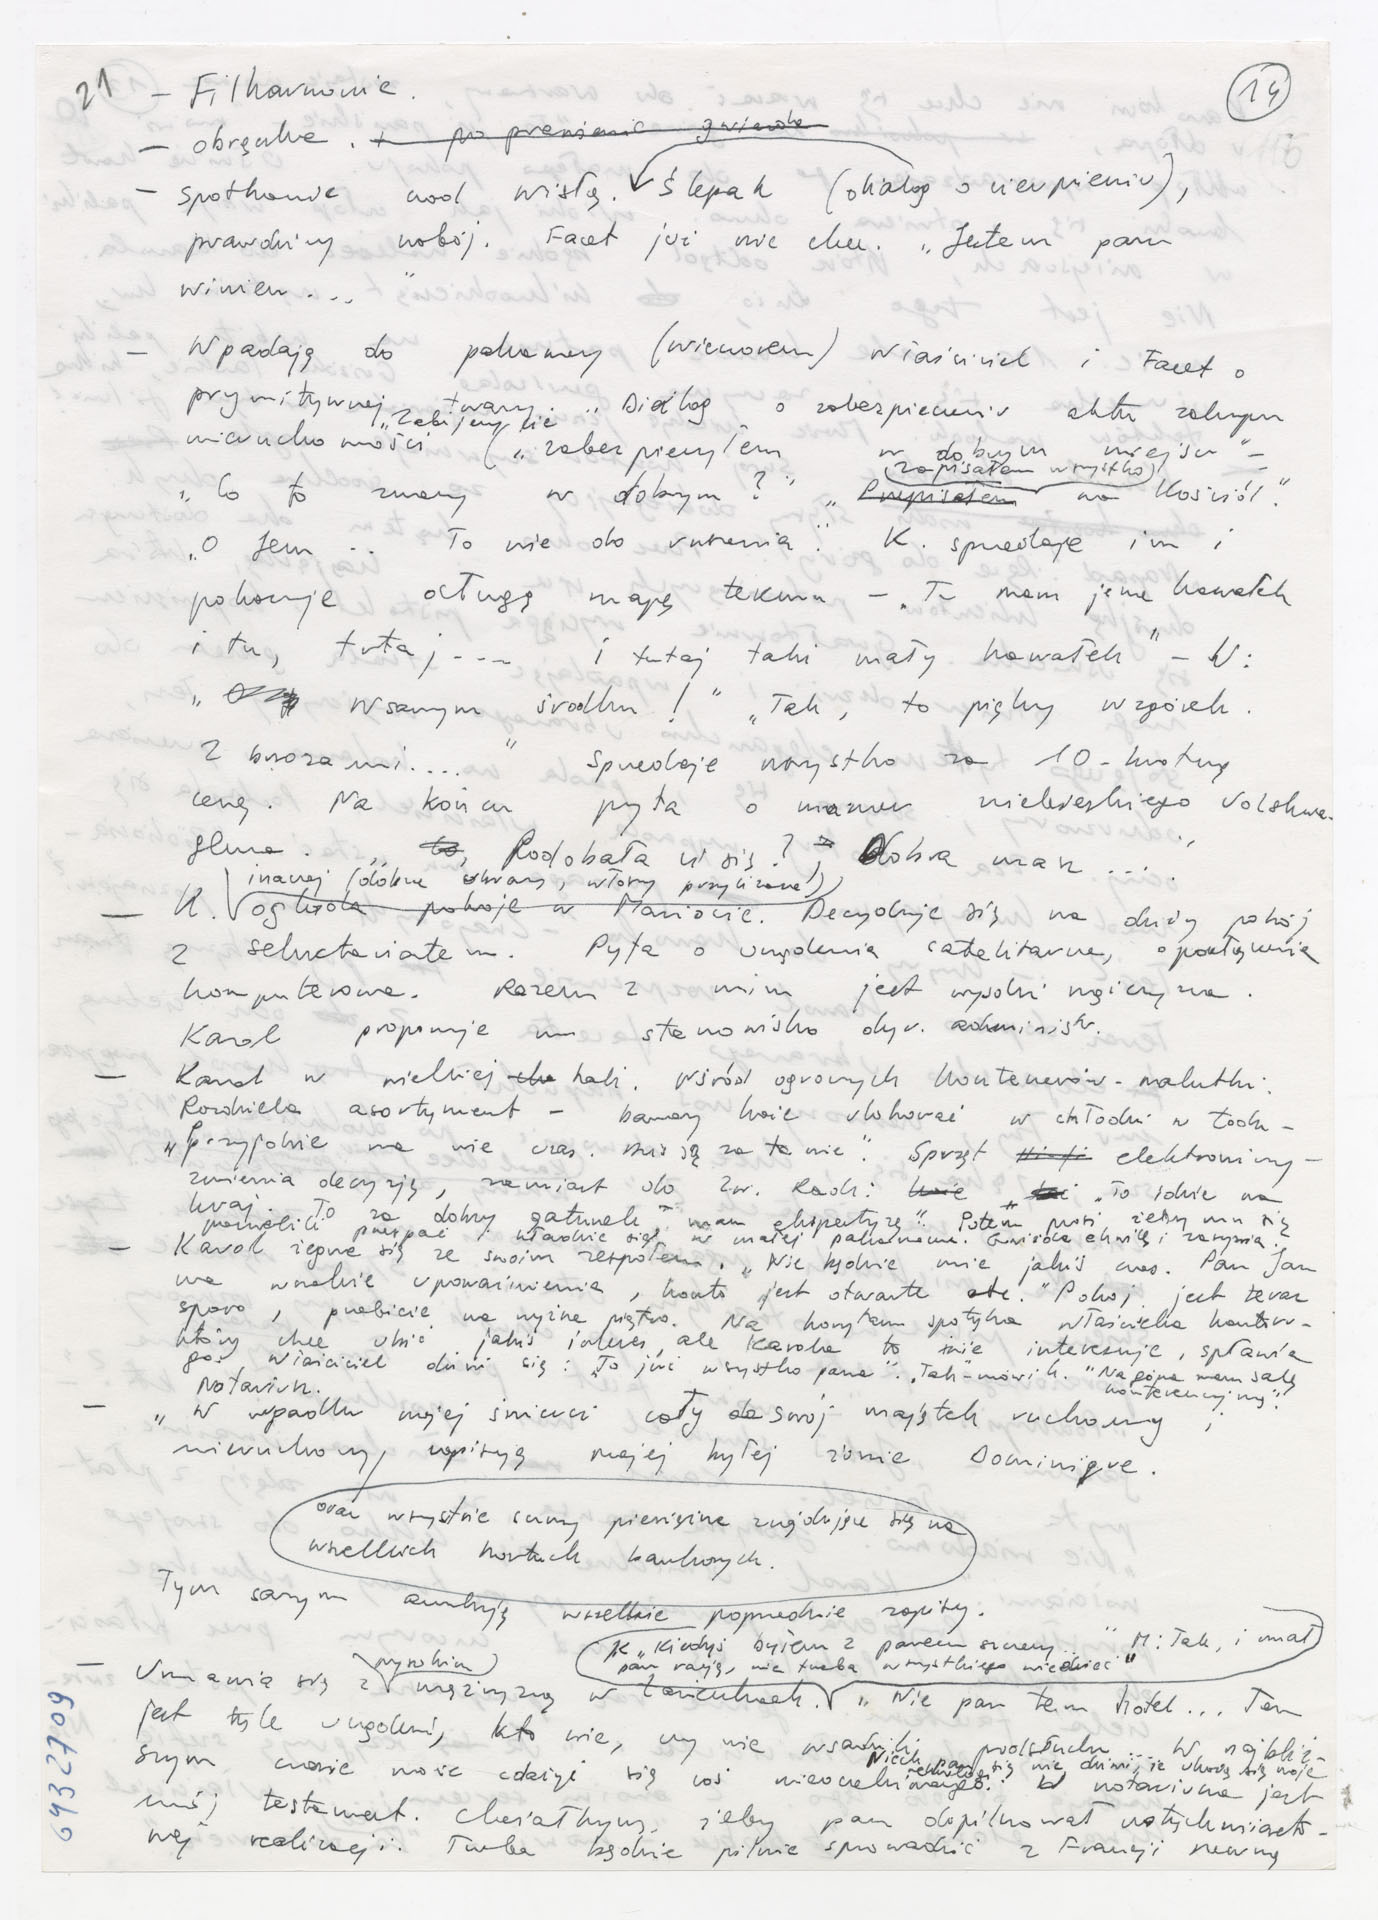 21
14
– Filharmonie.
– obrączka. + po premierze gwiazda
– spotkanie nad Wisłą. Ślepak (dialog o cierpieniu),
prawdziwy nabój. Facet już nie chce. „Jestem panu
winien...."
– Wpadają do pakamery (wieczorem) Właściciel i Facet o
prymitywnej twarzy. Dialog o zabezpieczeniu aktu zakupu
„Zabijemy cię
nieruchomości („zabezpieczyłem w dobrym miejscu" –
(zapisałem wszystko)
„Co to znaczy w dobrym?" „Przepisałem na Kościół."
„O Jezu... To nie do ruszenia." K. sprzedaje im i
pokazuje długą mapę terenu – „Tu mam jeszcze kawałek
i tu, tutaj.... i tutaj taki mały kawałek" – W:
„W samym środku!" „Tak, to piękny wzgórek.
Z brzozami...." Sprzedaje wszystko za 10-krotną
cenę. Na końcu pyta o numer niebieskiego Volkswa-
gena. „Podobała ci się?", Dobra marka....
inaczej (dobrze ubrany, włosy przylizane)
– K. ogląda pokoje w Mariocie. Decyduje się na duży pokój
z sekretariatem. Pyta o urządzenia satelitarne, o połączenia
komputerowe. Razem z nim jest wysoki mężczyzna.
Karol proponuje mu stanowisko dyr. administr.
– Karol w wielkiej hali. Wśród ogromnych kontenerów – malutki.
Rozdziela asortyment – banany każe ulokować w chłodni w Łodzi –
„Przyjdzie na nie czas. Dziś są za tanie". Sprzęt elektroniczny –
zmienia decyzję, zamiast do Zw. Radz: „To idzie na
kraj. To za dobry gatunek – mam ekspertyzę". Potem prosi żeby mu się
pozwolili przespać i kładzie się w małej pakamerze. Gwiżdże chwilę i zasypia.
– Karol żegna się ze swoim zespołem. „Nie będzie mnie jakiś czas. Pan Jan
ma wszelkie upoważnienia, konto jest otwarte etc." Pokój jest teraz
sporo, przebicie na wyższe piętro. Na korytarzu spotyka właściciela kantoru –
który chce ubić jakiś interes, ale Karola to nie interesuje, spławia
go. Właściciel dziwi się: „To już wszystko pana". „Tak" – mówi K. „Na górze mam salę
konferencyjną".
Notariusz.
– „W wypadku mojej śmierci cały swój majątek ruchomy i
nieruchomy zapisuję mojej byłej żonie Dominique.
oraz wszystkie sumy pieniężne znajdujące się na
wszelkich kontach bankowych.
Tym samym anuluję wszelkie poprzednie zapisy.
K „Kiedyś byłem z panem szczery..." M: Tak, i miał
pan rację, nie trzeba wszystkiego wiedzieć"
– Umawia się z wysokim mężczyzną w Łazienkach. „Nie pan ten hotel... Tam
jest tyle urządzeń, kto wie, czy nie wsadzili podsłuchu... W najbliż-
szym czasie może zdarzyć się coś nieoczekiwanego. U notariusza jest
Niech pan się nie dziwi, że ukażą się moje
nekrologi
mój testament. Chciałbym, żeby pan dopilnował natychmiasto-
wej realizacji. Trzeba będzie pilnie sprowadzić z Francji pewną
6932709